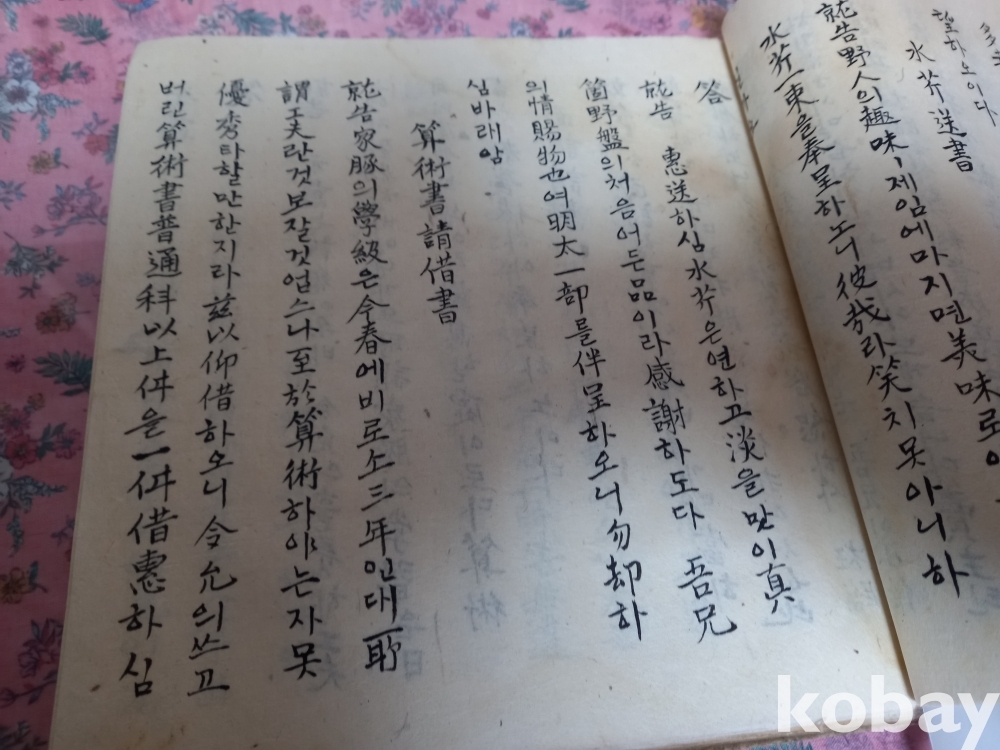 하오이다
水芥送書
就告野人의趣味、제임에마지면美味로
水芥一束을奉呈하노니彼哉라笑치못아니하
答
就告 惠送하심水芥은연하고淡을맛이真
箇野盤의처음어든品이라感謝하도다 吾兄
의情賜物也여明太一部를伴呈하오니勿却하
심바래암
算術書請借書
就告家豚의學級은今春에비로소三年인대所
謂工夫란것모잘것업스나至於算術하야는자못
優秀타할만한지라玆以仰借하오니令允의쓰고
버린算術書普通科以上件을一件借惠하심
kobay